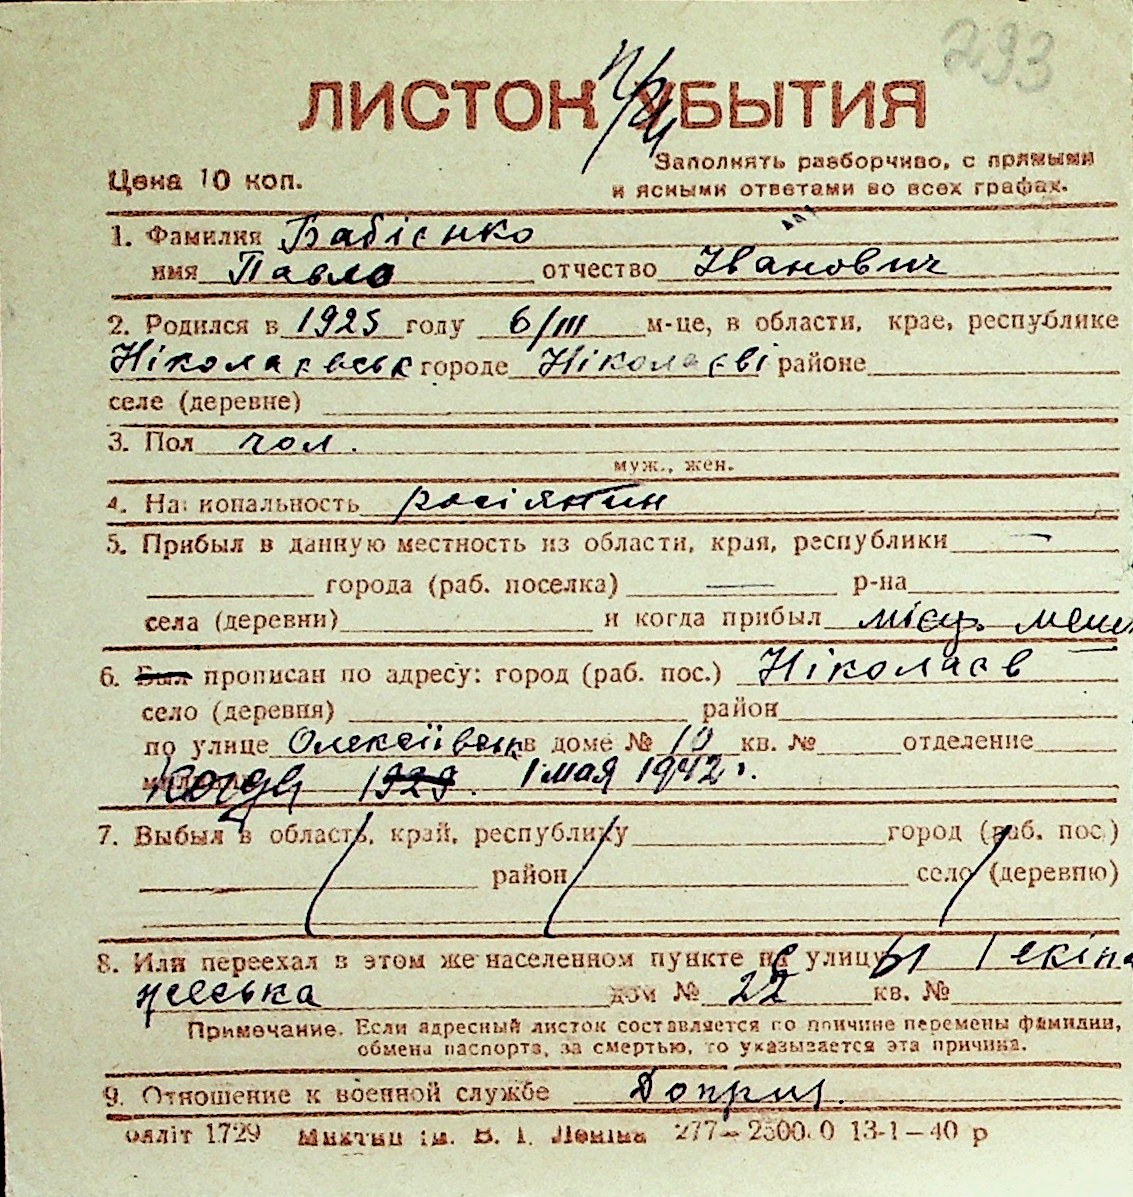 293
ЛИСТОК УБЫТИЯ
Цена 10 коп.
Заполнять разборчиво, с прямыми
и ясными ответами во всех графах.
1. Фамилия Бабієнко
имя Павло отчество Іванович
2. Родился в 1925 году 6/III м-це, в области, крае, республике
Ніколаєвськ городе Ніколаєві районе
селе (деревне)
3. Пол чол.
муж., жен.
4. Национальность росіянин
5. Прибыл в данную местность из области, края, республики —
города (раб. поселка) — р-на
села (деревни) и когда прибыл місц. меш
6. Был прописан по адресу: город (раб. пос.) Ніколаєв
село (деревня) район
по улице Олексіївськ в доме № 10 кв. № отделение
когда 1929. 1 мая 1942 г.
7. Выбыл в область, край, республику город (раб. пос.)
район село (деревню)
8. Или переехал в этом же населенном пункте с улицы
дом № 22 кв. №
Примечание. Если адресный листок составляется по причине перемены фамилии,
обмена паспорта, за смертью, то указывается эта причина.
9. Отношение к военной службе Доприз.
Облліт 1729 Миктип ім. В. І. Леніна 277—25000 13-1—40 р